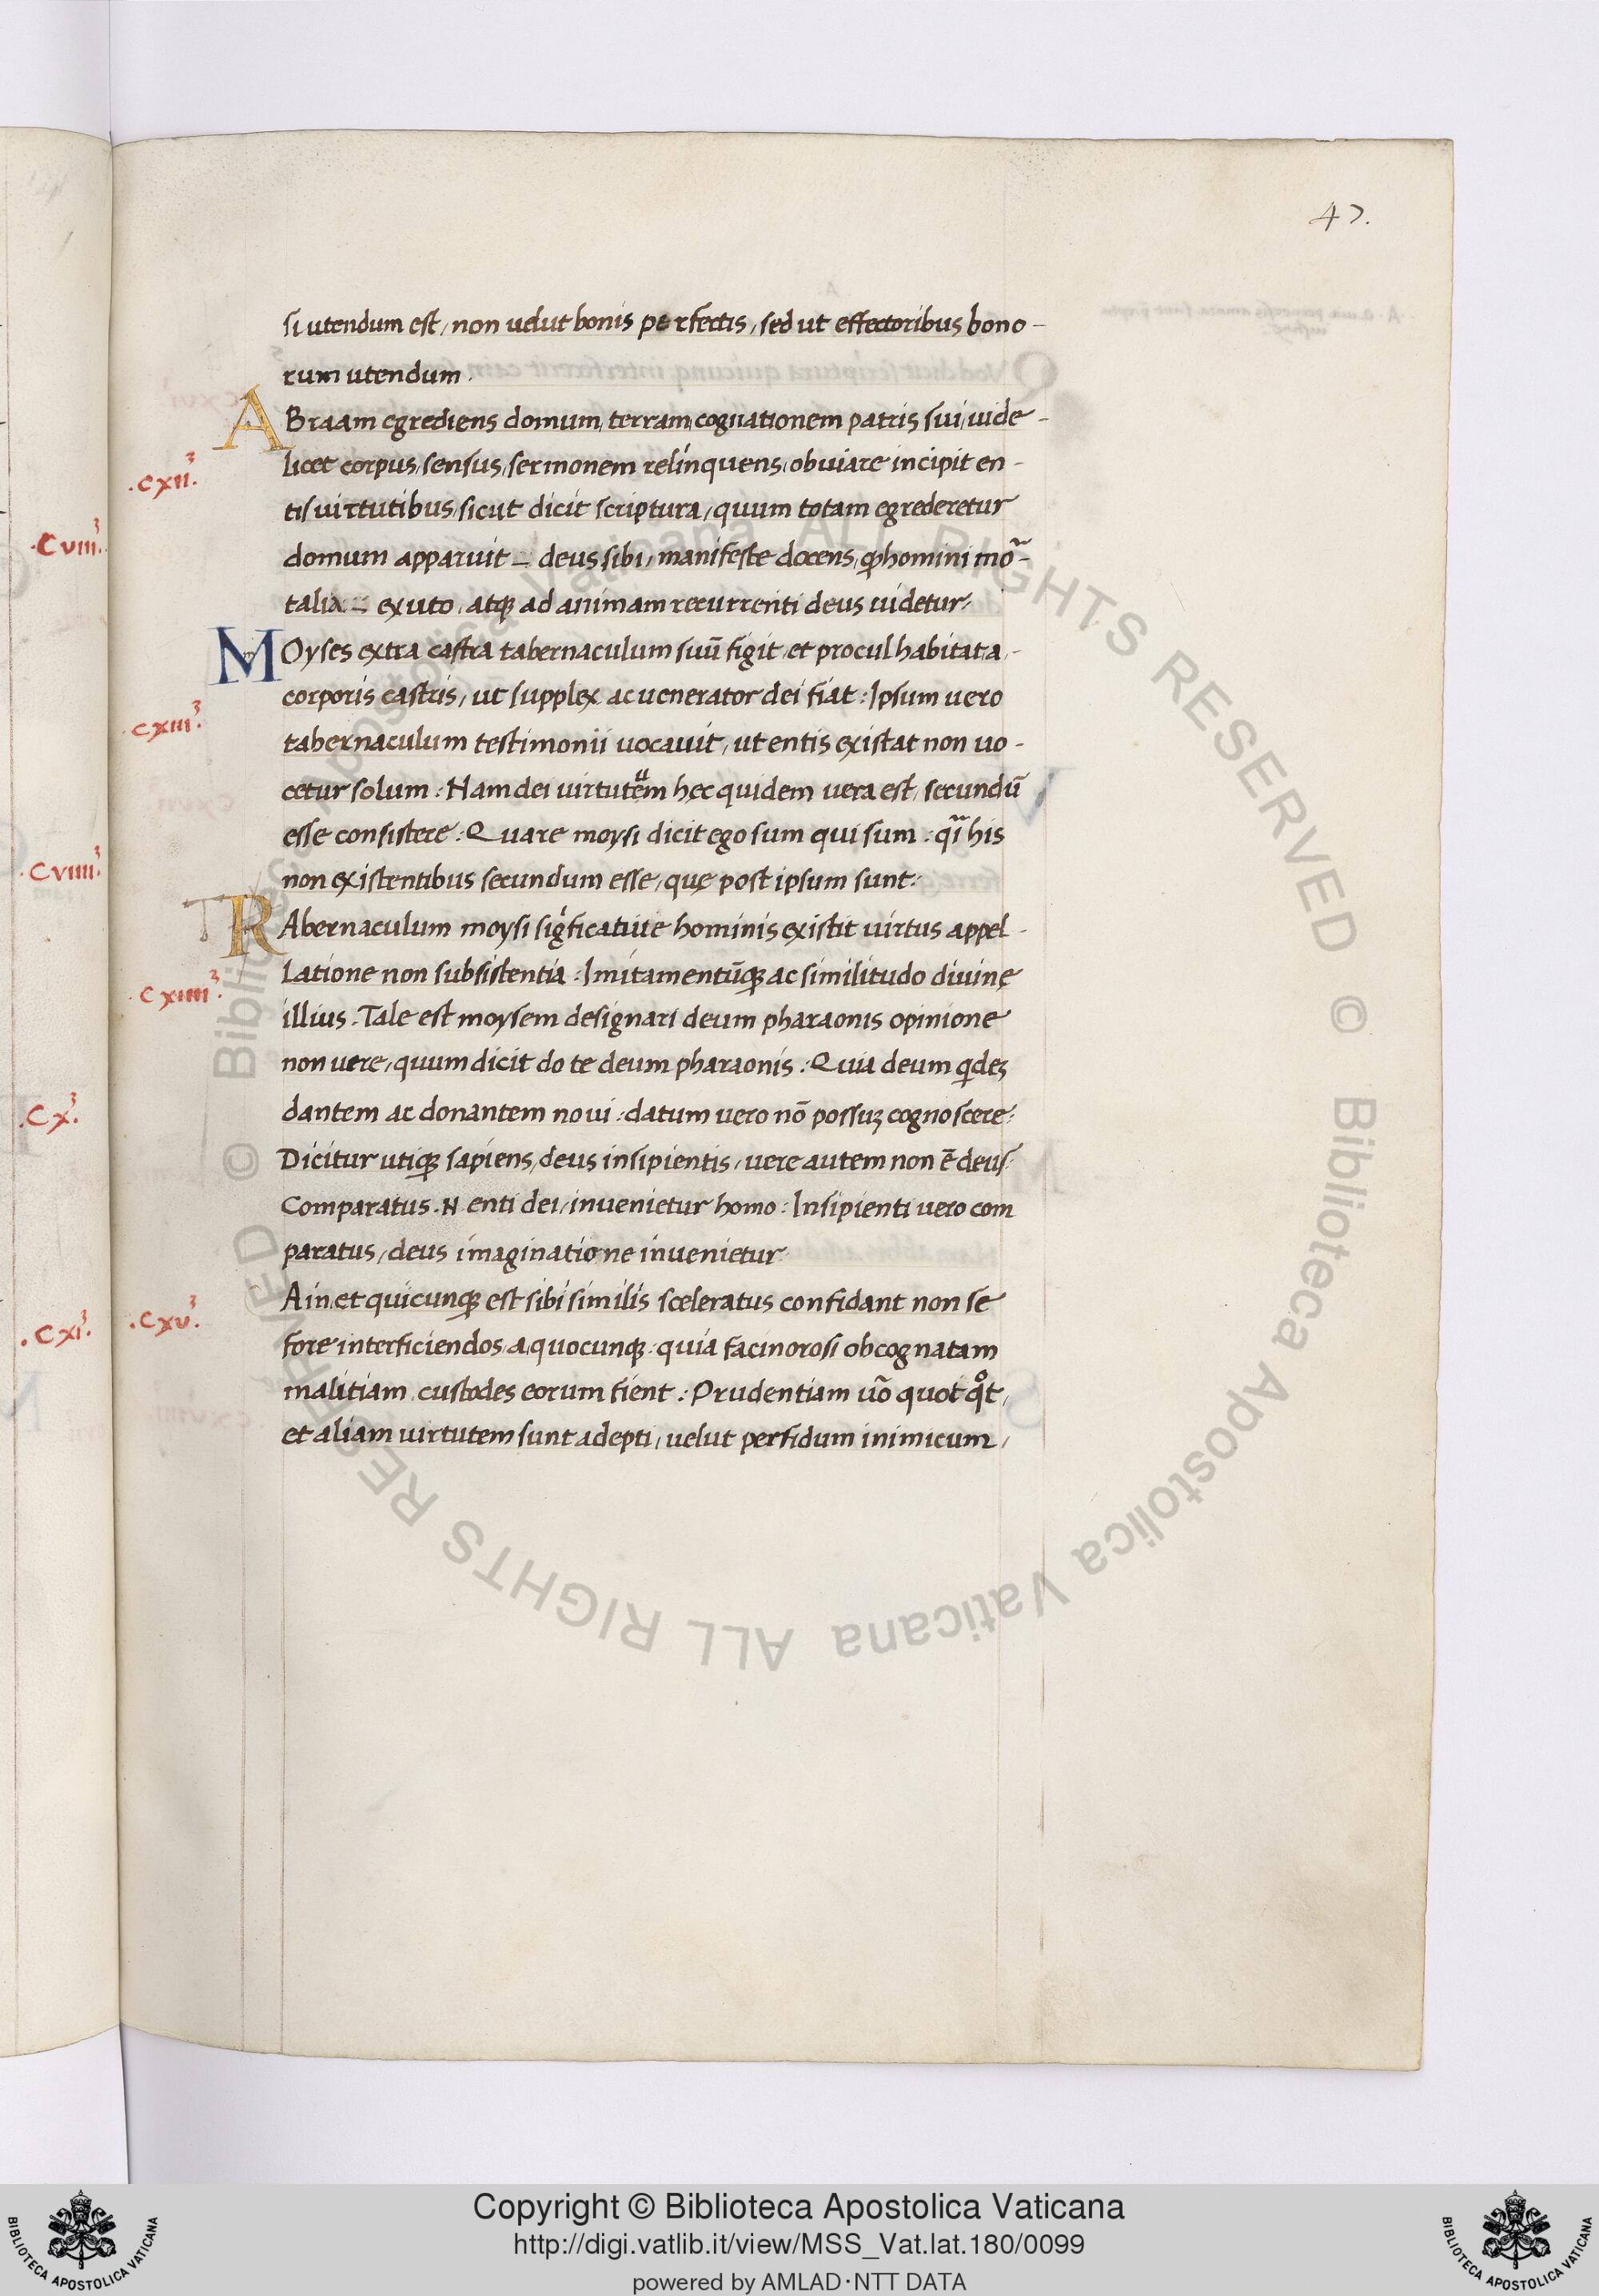 47.
si utendum est, non velut bonis perfectis, sed ut effectoribus bono-
rum utendum.
ABraam egrediens domum, terram, cognationem patris sui, vide-
.CXII.
licet corpus, sensus, sermonem relinquens, obviare incipit en-
tis virtutibus, sicut dicit scriptura, quum totam egrederetur
.CVIII.
domum apparuit _ deus sibi, manifeste docens, ꝙ homini mor̃-
talia exuto, atq̃ ad animam recurrenti deus videtur.
MOyses extra castra tabernaculum suũ figit, et procul habitat a,
corporis castris, ut supplex ac venerator dei fiat: Ipsum vero
.CXIII.
tabernaculum testimonii vocavit, ut entis existat non vo-
cetur solum: Nam dei virtutem hęc quidem vera est, secundũ
esse consistere: Quare moysi dicit ego sum qui sum: qĩ his
.CVIIII.
non existentibus secundum esse, quę post ipsum sunt:
TAbernaculum moysi hominis existit virtus appel-
.CXIIII.
latione non subsistentia: Imitamentũq̃ ac similitudo divinę
illius. Tale est moysem designari deum pharaonis opinione
non vere, quum dicit do te deum pharaonis: Quia deum qdeꝫ
.CX.
dantem ac donantem novi: datum vero nõ possuꝫ cognoscere:
Dicitur utiq̃ sapiens, deus insipientis, vere autem non ẽ deus.
Comparatus .N. enti dei, invenietur homo: Insipienti vero com
paratus, deus imaginatione invenietur
.CXI.
.CXV.
Ain et quicunq̃ est sibi similis sceleratus confidant non se
fore interficiendos a quocunq̃: quia facinorosi ob cognatam
malitiam custodes eorum fient: Prudentiam võ quot qͦt,
et aliam virtutem sunt adepti, velut perfidum inimicum,
© Biblioteca Apostolica Vaticana ALL RIGHTS RESERVED © Biblioteca Apostolica Vaticana ALL RIGHTS RESERVED
Copyright © Biblioteca Apostolica Vaticana
http://digi.vatlib.it/view/MSS_Vat.lat.180/0099
powered by AMLAD·NTT DATA
BIBLIOTECA APOSTOLICA VATICANA
BIBLIOTECA APOSTOLICA VATICANA